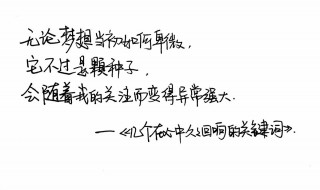 无论梦想当初如何卑微，
它不过是颗种子，
会随着我的关注而变得异常强大.
—《几个在心中久久回响的关键词》.